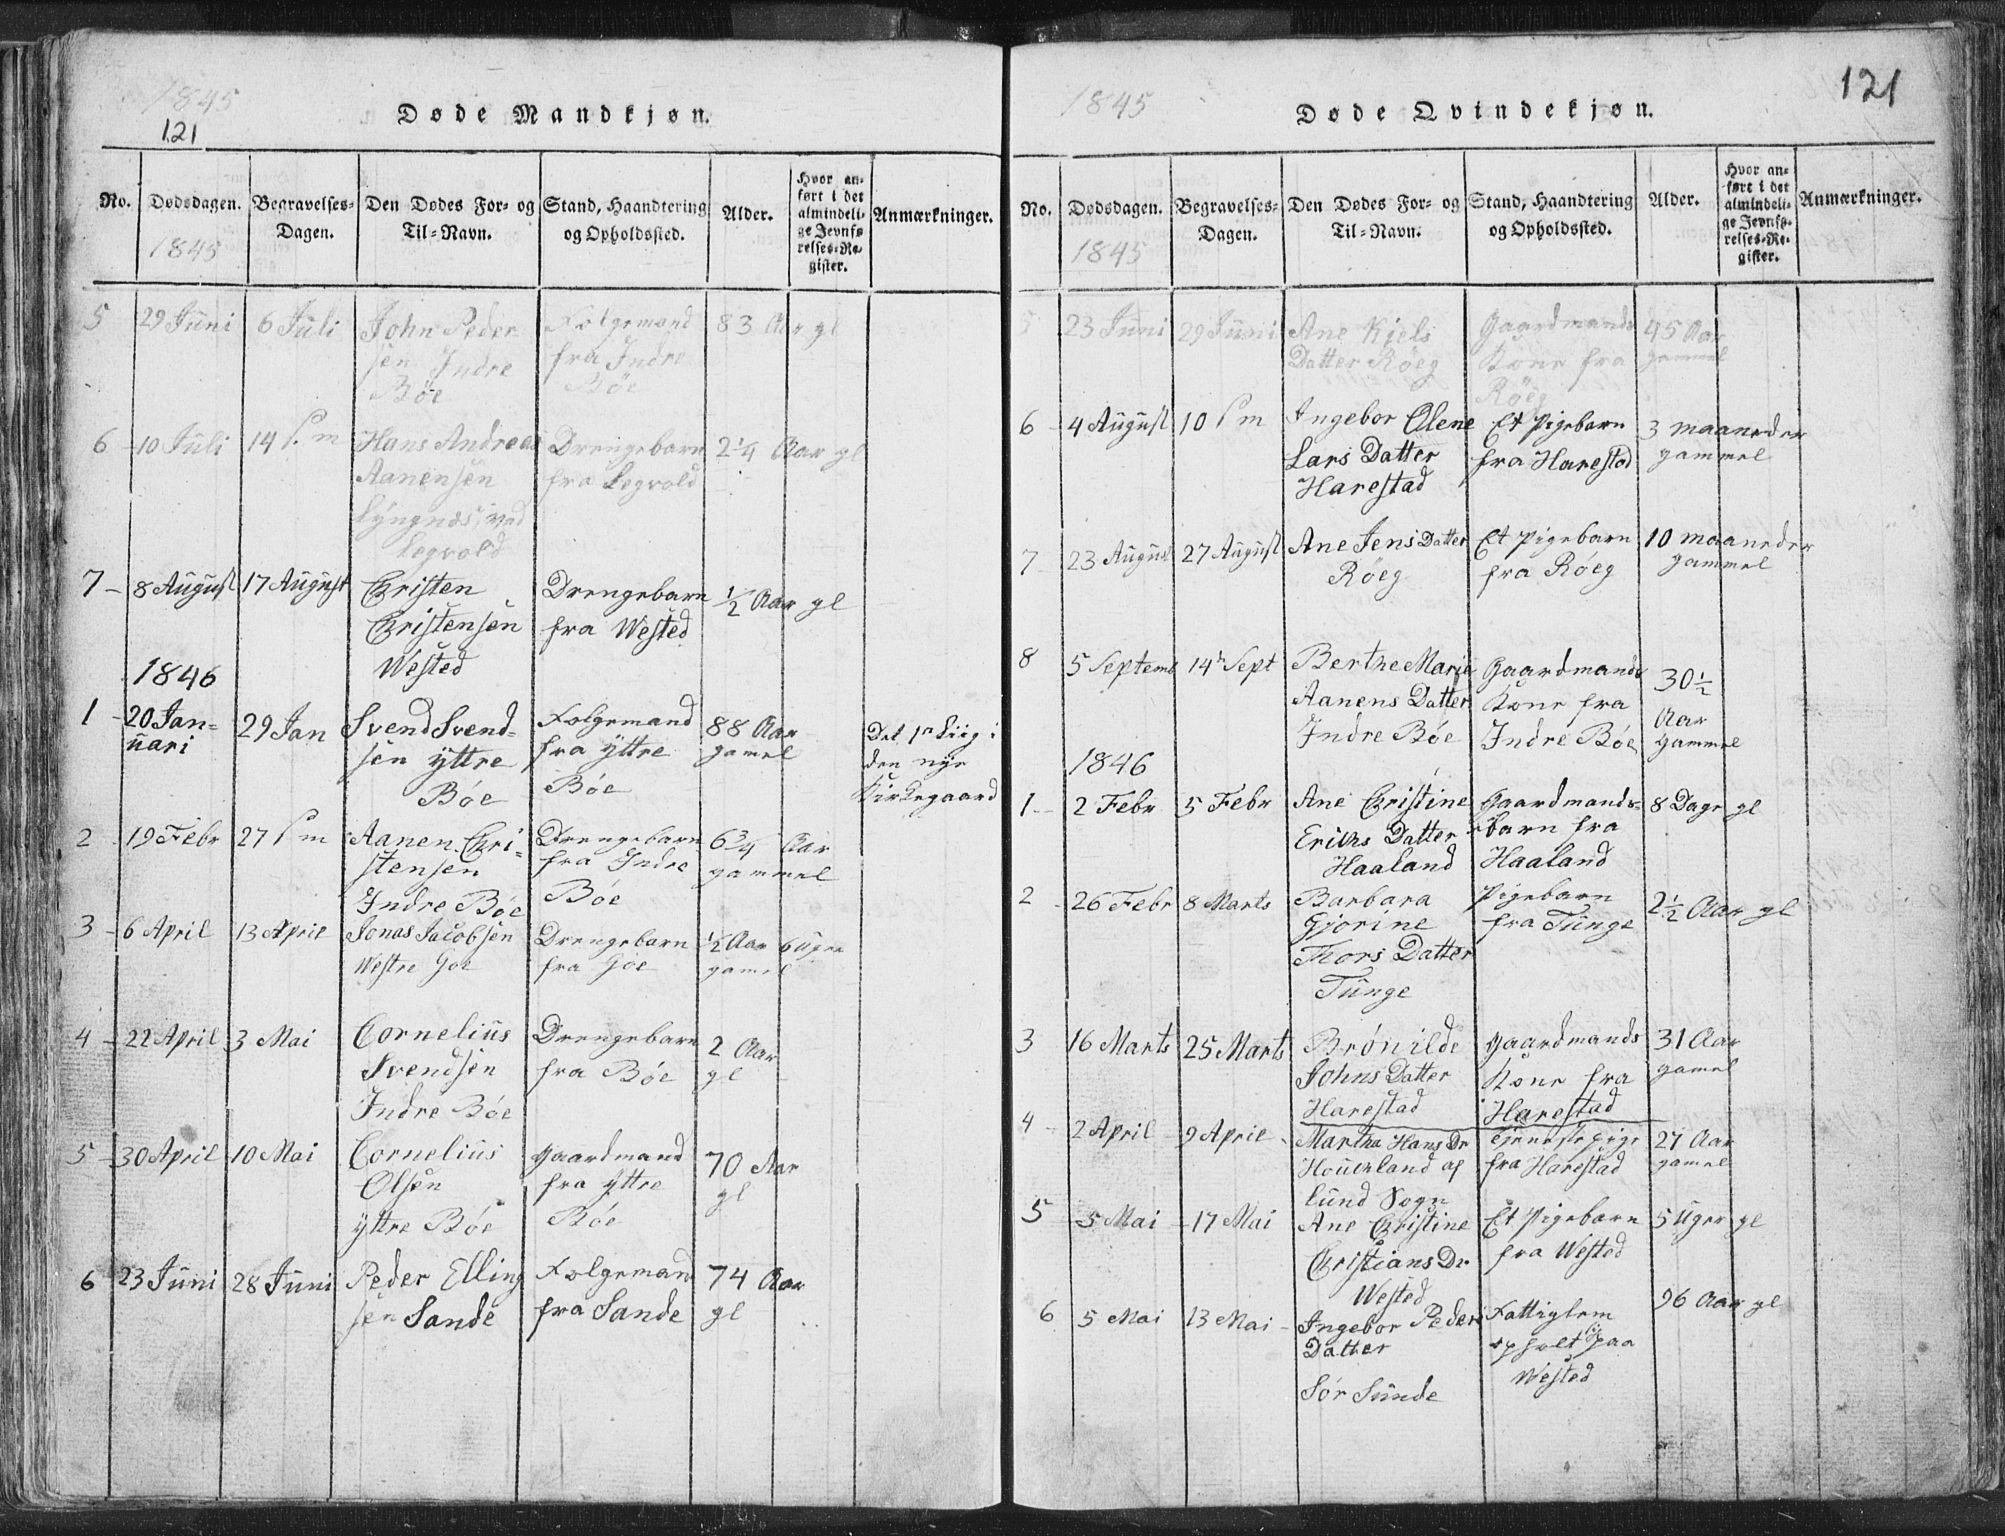 1845
121
Døde Mandkjøn.
No.
Dødsdagen.
1845
Begravelses-
Dagen.
Den Dødes For- og
Til-Navn.
Stand, Haandtering
og Opholdssted.
Alder.
Hvor an-
ført i det
almindeli-
ge Jevnfø-
relses-Re-
gister.
Anmærkninger.
5
29 Juni
6 Juli
John Peder
sen Indre
Böe
Folgemand
fra Indre
Böe
83 Aar gl
6
10 Juli
14 s. m
Hans Andreas
Aanensen
Lyngnæs, ved
Legvold
Drengebarn
fra Legvold
2 1/4 Aar gl
7
8 August
17 August
Christen
Christensen
Wested
Drengebarn
fra Wested
1/2 Aar gl
1846
1
20 Jan-
uari
29 Jan
Svend Svend-
sen yttre
Böe
Folgemand
fra yttre
Böe
88 Aar
gamel
Det 1n Liig i
den nye
Kirkegaard
2
19 Febr
27 s m
Aanen Chri-
stensen
Indre Böe
Drengebarn
fra Indre
Böe
6 3/4 Aar
gammel
3
6 April
13 April
Jonas Jacobsen
Westre Goe
Drengebarn
fra Göe
1/2 Aar 6 Uger
gamel
4
22 April
3 Mai
Cornelius
Svendsen
Indre Böe
Drengebarn
fra Böe
2 Aar
gl
5
30 April
10 Mai
Cornelius
Olsen
yttre Böe
Gaardmand
fra yttre
Böe
70 Aar
gl
6
23 Juni
28 Juni
Peder Elling
sen Sande
Folgeman
fra Sande
74 Aar
gl
121
1845
Døde Qvindekjøn.
No.
Dødsdagen.
1845
Begravelses-
Dagen.
Den Dødes For- og
Til-Navn.
Stand, Haandtering
og Opholdssted.
Alder.
Hvor an-
ført i det
almindeli-
ge Jevnfø-
relses-Re-
gister.
Anmærkninger.
5
23 Juni
29 Juni
Ane Kjels
Datter Röeg
Gaardmands
Kone fra
Röeg
45 Aar
gammel
6
4 August
10 s m
Ingebor Olene
Lars Datter
Harestad
Et Pigebarn
fra Harestad
3 maaneder
gammel
7
23 August
27 August
Ane Jens Datter
Röeg
Et Pigebarn
fra Röeg
10 maaneder
gammel
8
5 Septemb
14 Sept
Berthe Marie
Aanens Datter
Indre Böe
Gaardmands
Kone fra
Indre Böe
30 1/2
Aar
gammel
1846
1
2 Febr
5 Febr
Ane Christine
Eriks Datter
Haaland
Gaardmands-
barn fra
Haaland
8 Dage gl
2
26 Febr
8 Marts
Barbara
Gjorine
Thors Datter
Tunge
Pigebarn
fra Tunge
2 1/2 Aar gl
3
16 Marts
25 Marts
Brönilde
Johns Datter
Harestad
Gaardmands
Kone fra
Harestad
31 Aar
gamel
4
2 April
9 April
Martha Hans Dr
Houerland af
lund Sogn
Tjenestepige
fra Harestad
27 Aar
gamel
5
5 Mai
17 Mai
Ane Christine
Christians Dr
Wested
Et Pigebarn
fra Wested
5 Uger gl
6
5 Mai
13 Mai
Ingebor Peders
Datter
Sör Sunde
Fattiglem
paa
Wested
96 Aar gl